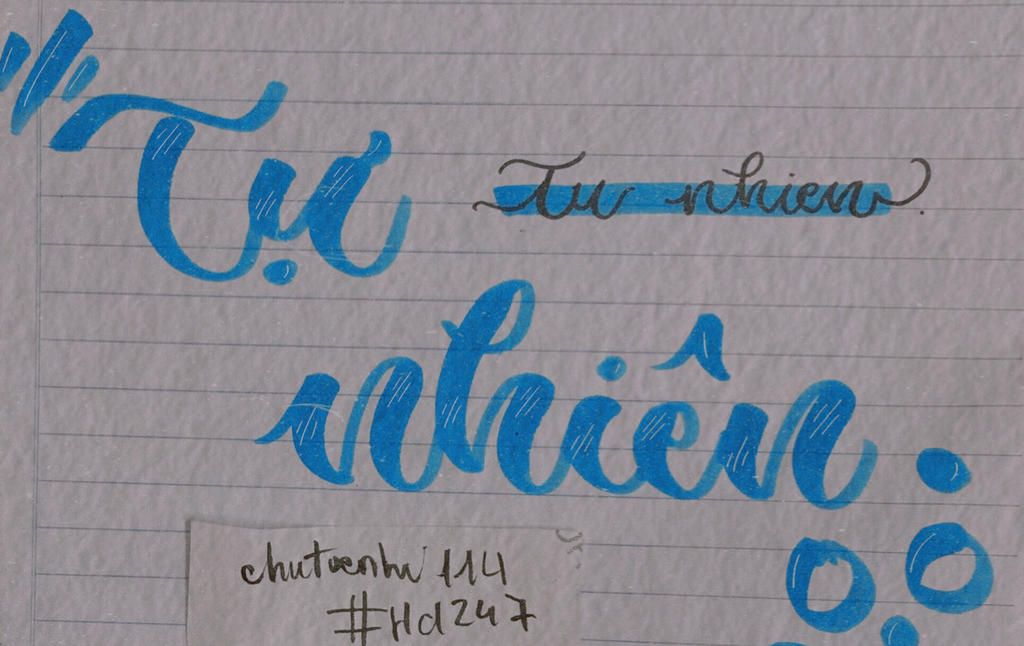 Tự
Tu nhien.
nhiên.
chutoenhi 114
#Hd247